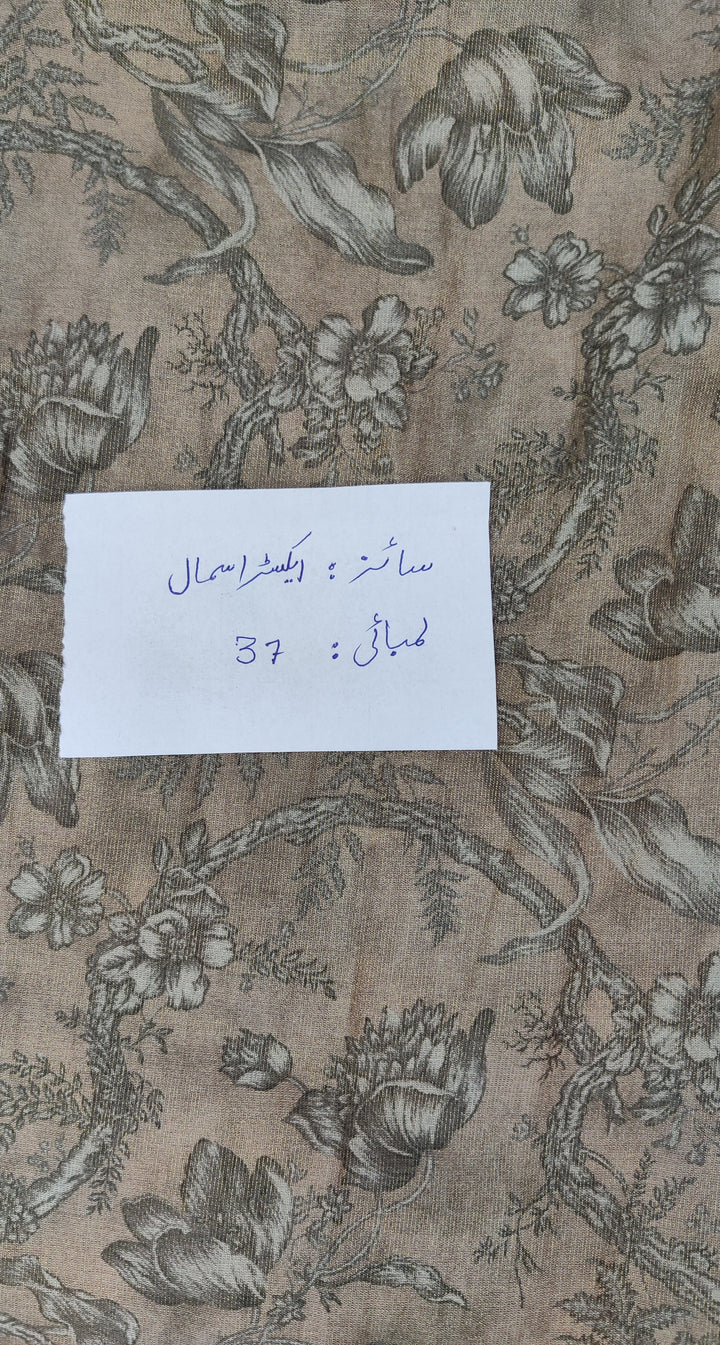 سائز : ایکسٹرا سمال
لمبائی : 37